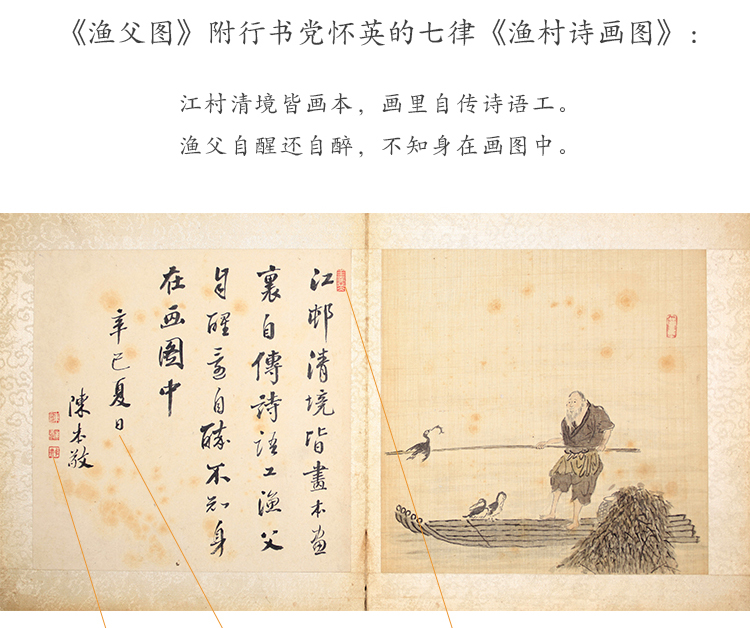 《渔父图》附行书党怀英的七律《渔村诗画图》：
江村清境皆画本，画里自传诗语工。
渔父自醒还自醉，不知身在画图中。
江邨清境皆畫本畫
裏自傳詩語工漁父
自醒還自醉不知身
在画图中
辛巳夏日
陳本敬